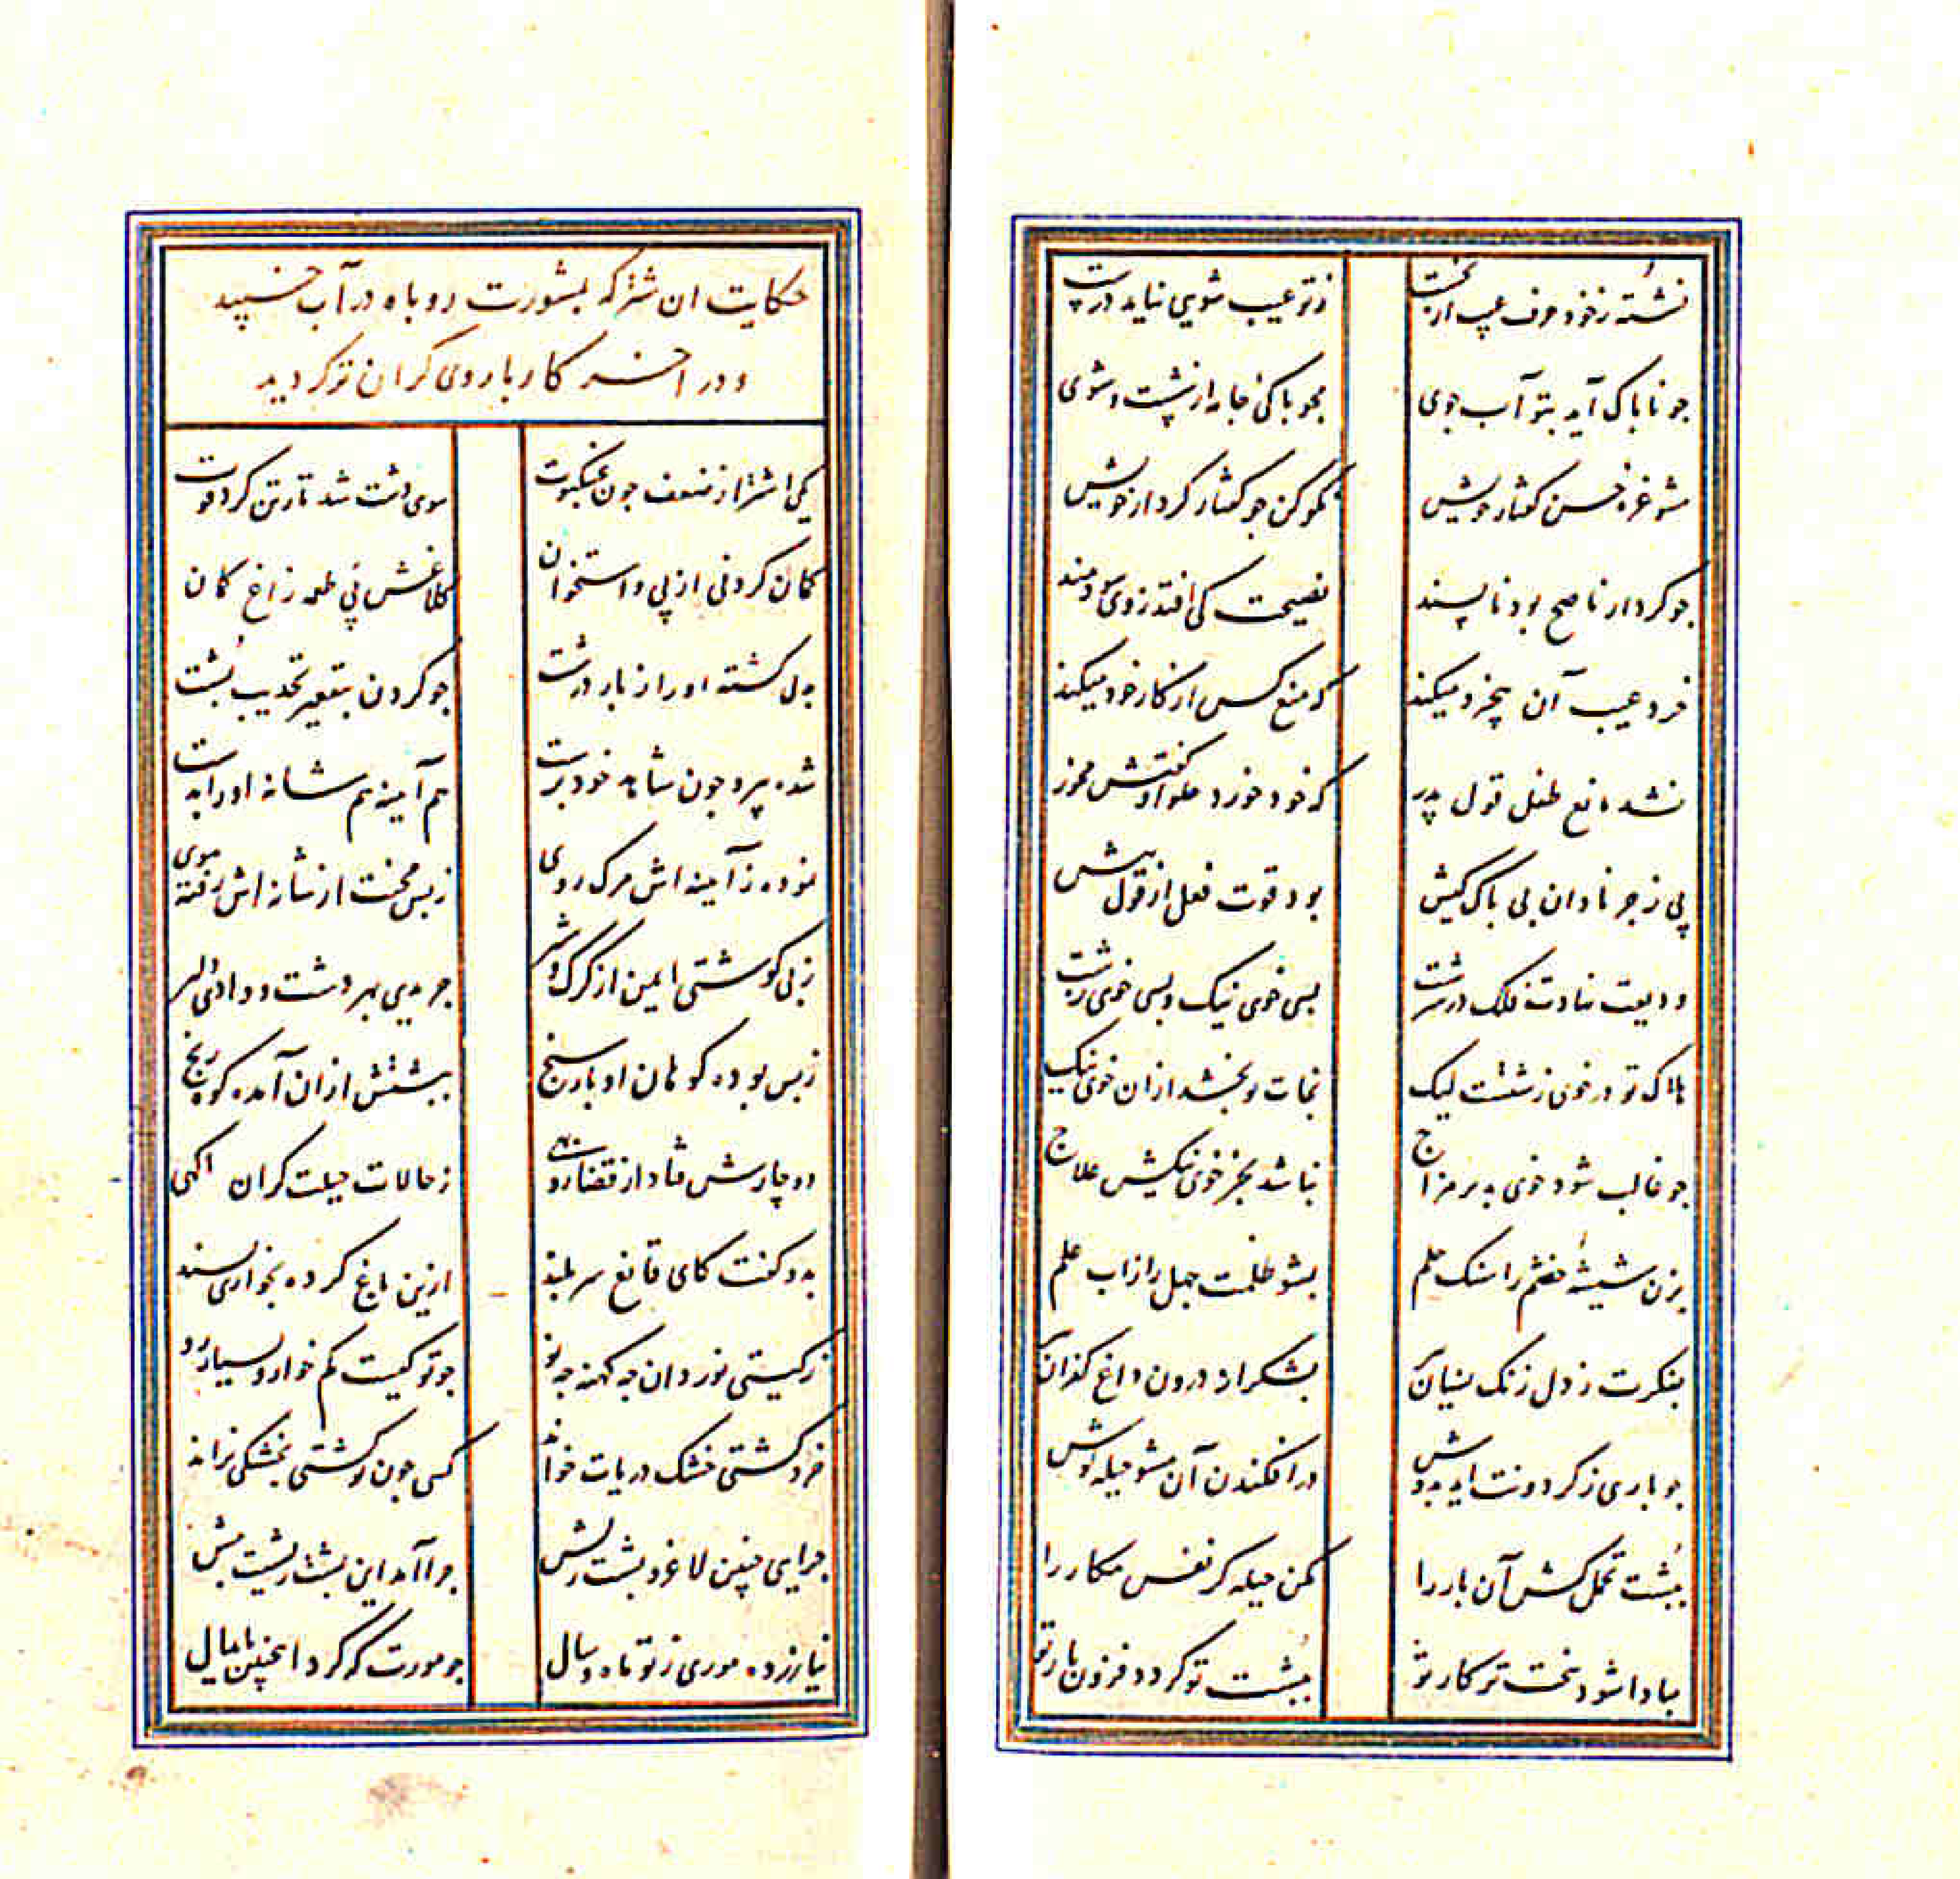 نشسته ز خود حرف عیب از نخست ز تو عیب شویی نیاید درست
جو ناباک آید بتو آب جوی مجو باکی جامه از شست و شوی
مشو غره حسن کفتار خویش نکو کن جو کفتار کردار خویش
جو کردار ناصح بود نابسند نصیحت کی افتد ز وی سودمند
خرد عیب آن بیخرد میکند که منع کس از کار خود میکند
نشد مانع طفل قول پدر که خود خورد حلوا و کفتش مخور
پی زجر نادان بی باک کیش بود قوت فعل از قول بیش
ودیعت نهادت فلک در سرشت بسی خوی نیک و بسی خوی زشت
هلاک تو در خوی زشتست لیک نجات تو بخشد از ان خوی نیک
جو غالب شود خوی بد بر مزاج نباشد بجز خوی نیکش علاج
بزن شیشهٔ خشم را سنک حلم بشو ظلمت جهل را ز اب علم
بفکرت ز دل زنک نسیان بشکرانه درون داغ کفران
جو باری ز کردونت اید بدوش در افکندن آن مشو حیله کوش
ببشت تحمل کش آن بار را مکن حیله کر نفس مکار را
مبادا شود سخت تر کار تو ببشت تو کردد فزون بار تو
حکایت ان شتر که بمشورت روباه در آب خسپید
و در اخر کار باروی کران تر کردید
یکی اشتر از ضعف جون عنکبوت سوی دشت شد تار تن کرد قوت
کمان کردنی از پی و استخوان کلاغش پی طعمه زاغ کمان
بدل کشته او را ز بار درشت جو کردن بتقعیر تحدیب بشت
شده پیر و جون شاهد خود برست هم آیینه هم شانه او را بدست
نموده ز آیینه اش مرک روی ز بس محنت از شانه اش رفته موی
ز بی کوشتی ایمن از کرک و شیر جریدی بهر دشت و وادی دلیر
ز بس بوده کوهان او بار سنج ببشتش از ان آمده کوه رنج
دو چارش فتاد از قضا روبهی ز حالات حیلت کران اکهی
بدو کفت کای قانع سربلند ازین باغ کرده بخواری بسند
ز کیتی نوردان جه کهنه جه نو جو تو کیست کم خوار و بسیار رو
خرد کشتی خشک دریات خواند کسی جون تو کشتی بخشکی نراند
جرایی جنین لاغر و بشت ریش جرا آمد این بشتها بیشت بیش
نیازرده موری ز تو ماه و سال جو مورت که کرد اینجنین بایمال